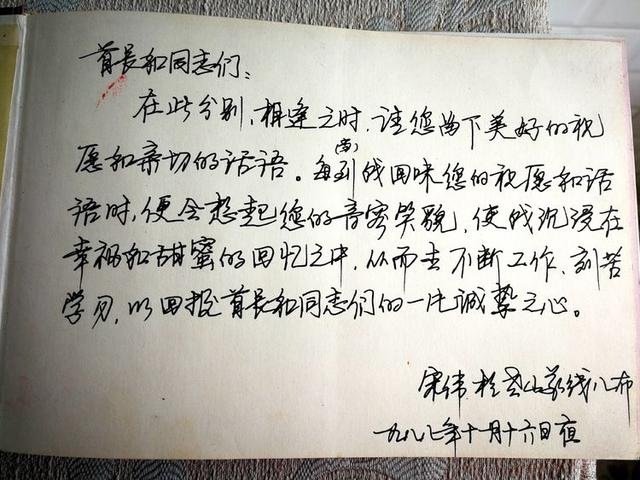 首长和同志们:
在此分别、相逢之时,请您留下美好的祝
愿和亲切的话语。每到(当)我回味您的祝愿和话
语时,便会想起您的音容笑貌,使我沉浸在
幸福和甜蜜的回忆之中,从而去不断工作、刻苦
学习,以回报首长和同志们的一片诚挚之心。
宋伟 于老山前线八布
一九八七年十一月十六日夜